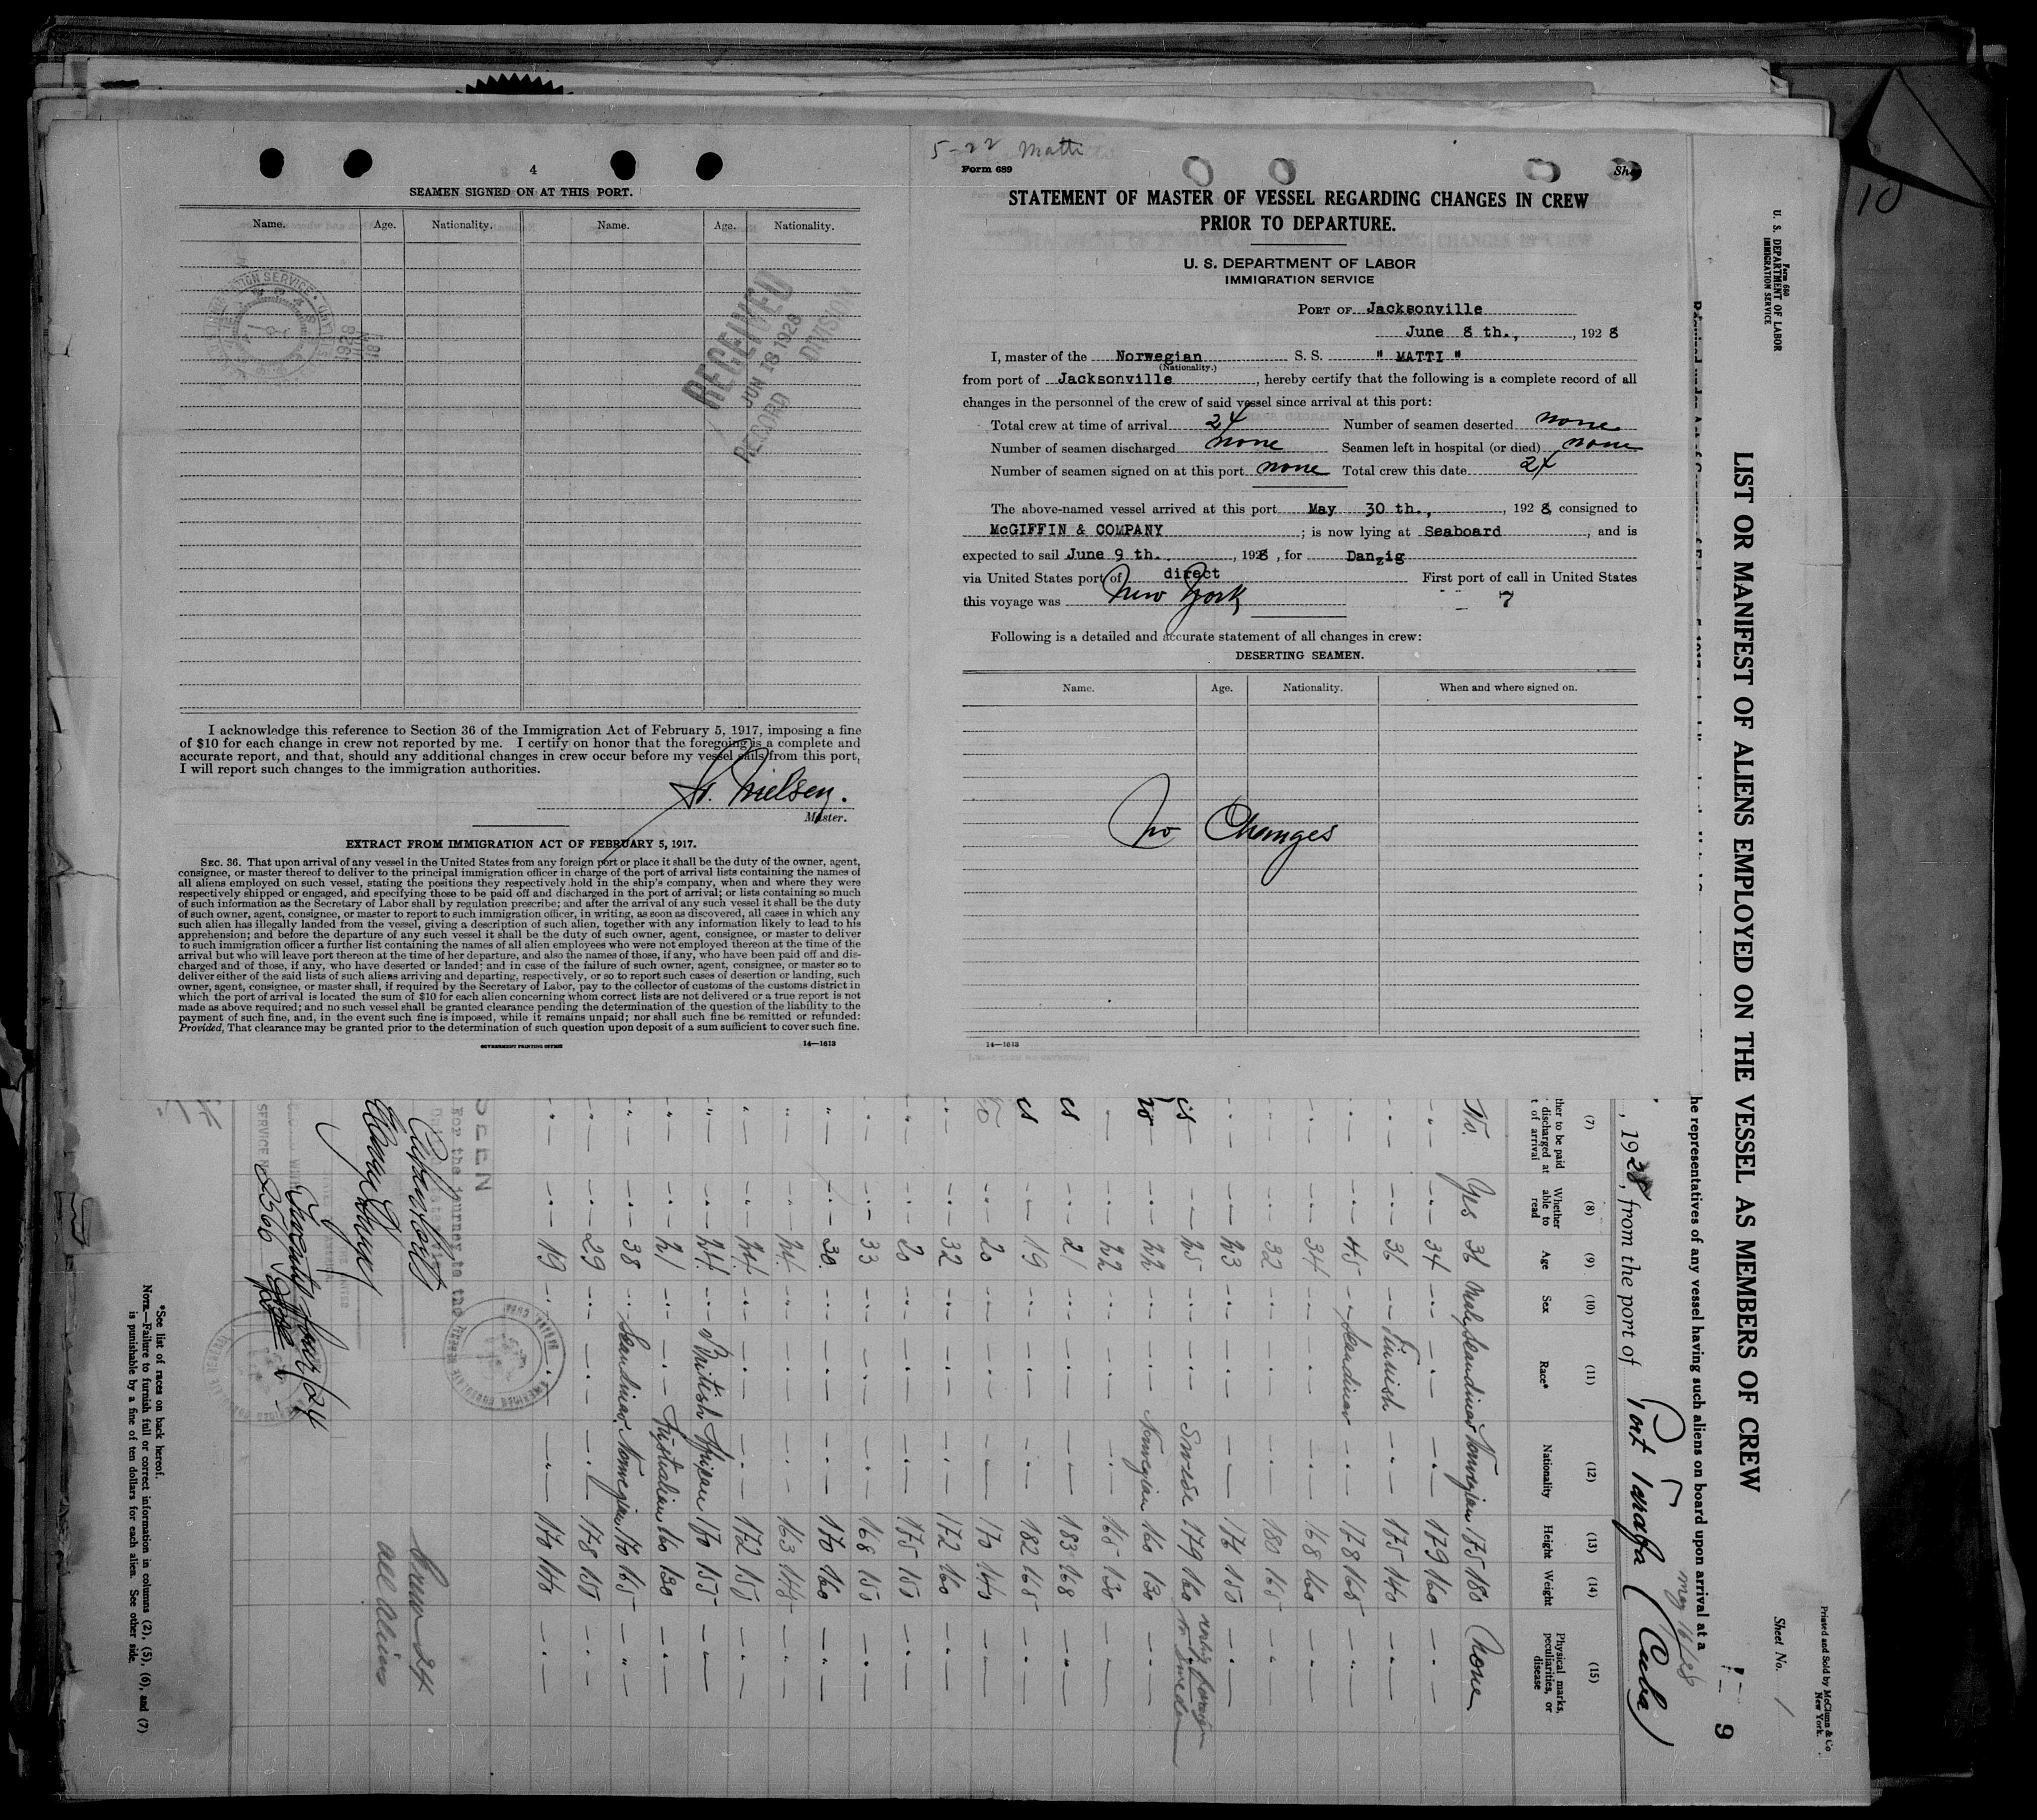 4
SEAMEN SIGNED ON AT THIS PORT.
Name. Age. Nationality. Name. Age. Nationality.
IMMIGRATION SERVICE
RECEIVED
JUN 18 1928
RECORD DIVISION
I acknowledge this reference to Section 36 of the Immigration Act of February 5, 1917, imposing a fine
of $10 for each change in crew not reported by me. I certify on honor that the foregoing is a complete and
accurate report, and that, should any additional changes in crew occur before my vessel sails from this port,
I will report such changes to the immigration authorities.
Nielsen.
Master.
EXTRACT FROM IMMIGRATION ACT OF FEBRUARY 5, 1917.
SEC. 36. That upon arrival of any vessel in the United States from any foreign port or place it shall be the duty of the owner, agent,
consignee, or master thereof to deliver to the principal immigration officer in charge of the port of arrival lists containing the names of
all aliens employed on such vessel, stating the positions they respectively hold in the ship's company, when and where they were
respectively shipped or engaged, and specifying those to be paid off and discharged in the port of arrival; or lists containing so much
of such information as the Secretary of Labor shall by regulation prescribe; and after the arrival of any such vessel it shall be the duty
of such owner, agent, consignee, or master to report to such immigration officer, in writing, as soon as discovered, all cases in which any
such alien has illegally landed from the vessel, giving a description of such alien, together with any information likely to lead to his
apprehension; and before the departure of any such vessel it shall be the duty of such owner, agent, consignee, or master to deliver
to such immigration officer a further list containing the names of all alien employees who were not employed thereon at the time of the
arrival but who will leave port thereon at the time of her departure, and also the names of those, if any, who have been paid off and dis-
charged and of those, if any, who have deserted or landed; and in case of the failure of such owner, agent, consignee, or master so to
deliver either of the said lists of such aliens arriving and departing, respectively, or so to report such cases of desertion or landing, such
owner, agent, consignee, or master shall, if required by the Secretary of Labor, pay to the collector of customs of the customs district in
which the port of arrival is located the sum of $10 for each alien concerning whom correct lists are not delivered or a true report is not
made as above required; and no such vessel shall be granted clearance pending the determination of the question of the liability to the
payment of such fine, and, in the event such fine is imposed, while it remains unpaid; nor shall such fine be remitted or refunded:
Provided, That clearance may be granted prior to the determination of such question upon deposit of a sum sufficient to cover such fine.
GOVERNMENT PRINTING OFFICE 14—1613
5-22 Matti
Form 689
STATEMENT OF MASTER OF VESSEL REGARDING CHANGES IN CREW
PRIOR TO DEPARTURE.
U. S. DEPARTMENT OF LABOR
IMMIGRATION SERVICE
PORT OF Jacksonville
June 8 th., , 1928
I, master of the Norwegian S. S. " MATTI "
(Nationality.)
from port of Jacksonville , hereby certify that the following is a complete record of all
changes in the personnel of the crew of said vessel since arrival at this port:
Total crew at time of arrival 24 Number of seamen deserted none
Number of seamen discharged none Seamen left in hospital (or died) none
Number of seamen signed on at this port none Total crew this date 24
The above-named vessel arrived at this port May 30 th., , 1928 consigned to
McGIFFIN & COMPANY ; is now lying at Seaboard , and is
expected to sail June 9 th. , 1928 , for Danzig
via United States port of direct First port of call in United States
this voyage was New York 7
Following is a detailed and accurate statement of all changes in crew:
DESERTING SEAMEN.
Name. Age. Nationality. When and where signed on.
No Changes
14—1613
10
Form 680
U. S. DEPARTMENT OF LABOR
IMMIGRATION SERVICE
Sheet No. 1
Printed and Sold by McClunn & Co
New York.
LIST OR MANIFEST OF ALIENS EMPLOYED ON THE VESSEL AS MEMBERS OF CREW
9
he representatives of any vessel having such aliens on board upon arrival at a
May 16/28
, 1928, from the port of Port Tarafa (Cuba)
(7) (8) (9) (10) (11) (12) (13) (14) (15)
ther to be paid discharged at t of arrival Whether able to read Age Sex Race* Nationality Height Weight Physical marks, peculiarities, or disease
No. Yes 36 Male Scandinav Norwegian 175 180 None
34 179 160
36 Finnish 175 140
45 Scandinav 178 165
34 168 160
32 180 165
23 176 150
25 Swede 179 160
22 Norwegian 160 130
22 165 130
21 183 168
19 182 165
20 170 140
32 172 160
20 175 150
33 168 150
30 170 160
24 163 145
24 172 155
24 British African 170 155
21 160 130
38 Scandinav Norwegian 170 165
29 178 155
19 170 140
SEEN
For the journey to the
Twenty four/24
SERVICE No 2566
Crew 24
all aliens
*See list of races on back hereof.
NOTE.—Failure to furnish full or correct information in columns (2), (5), (6), and (7)
is punishable by a fine of ten dollars for each alien. See other side.